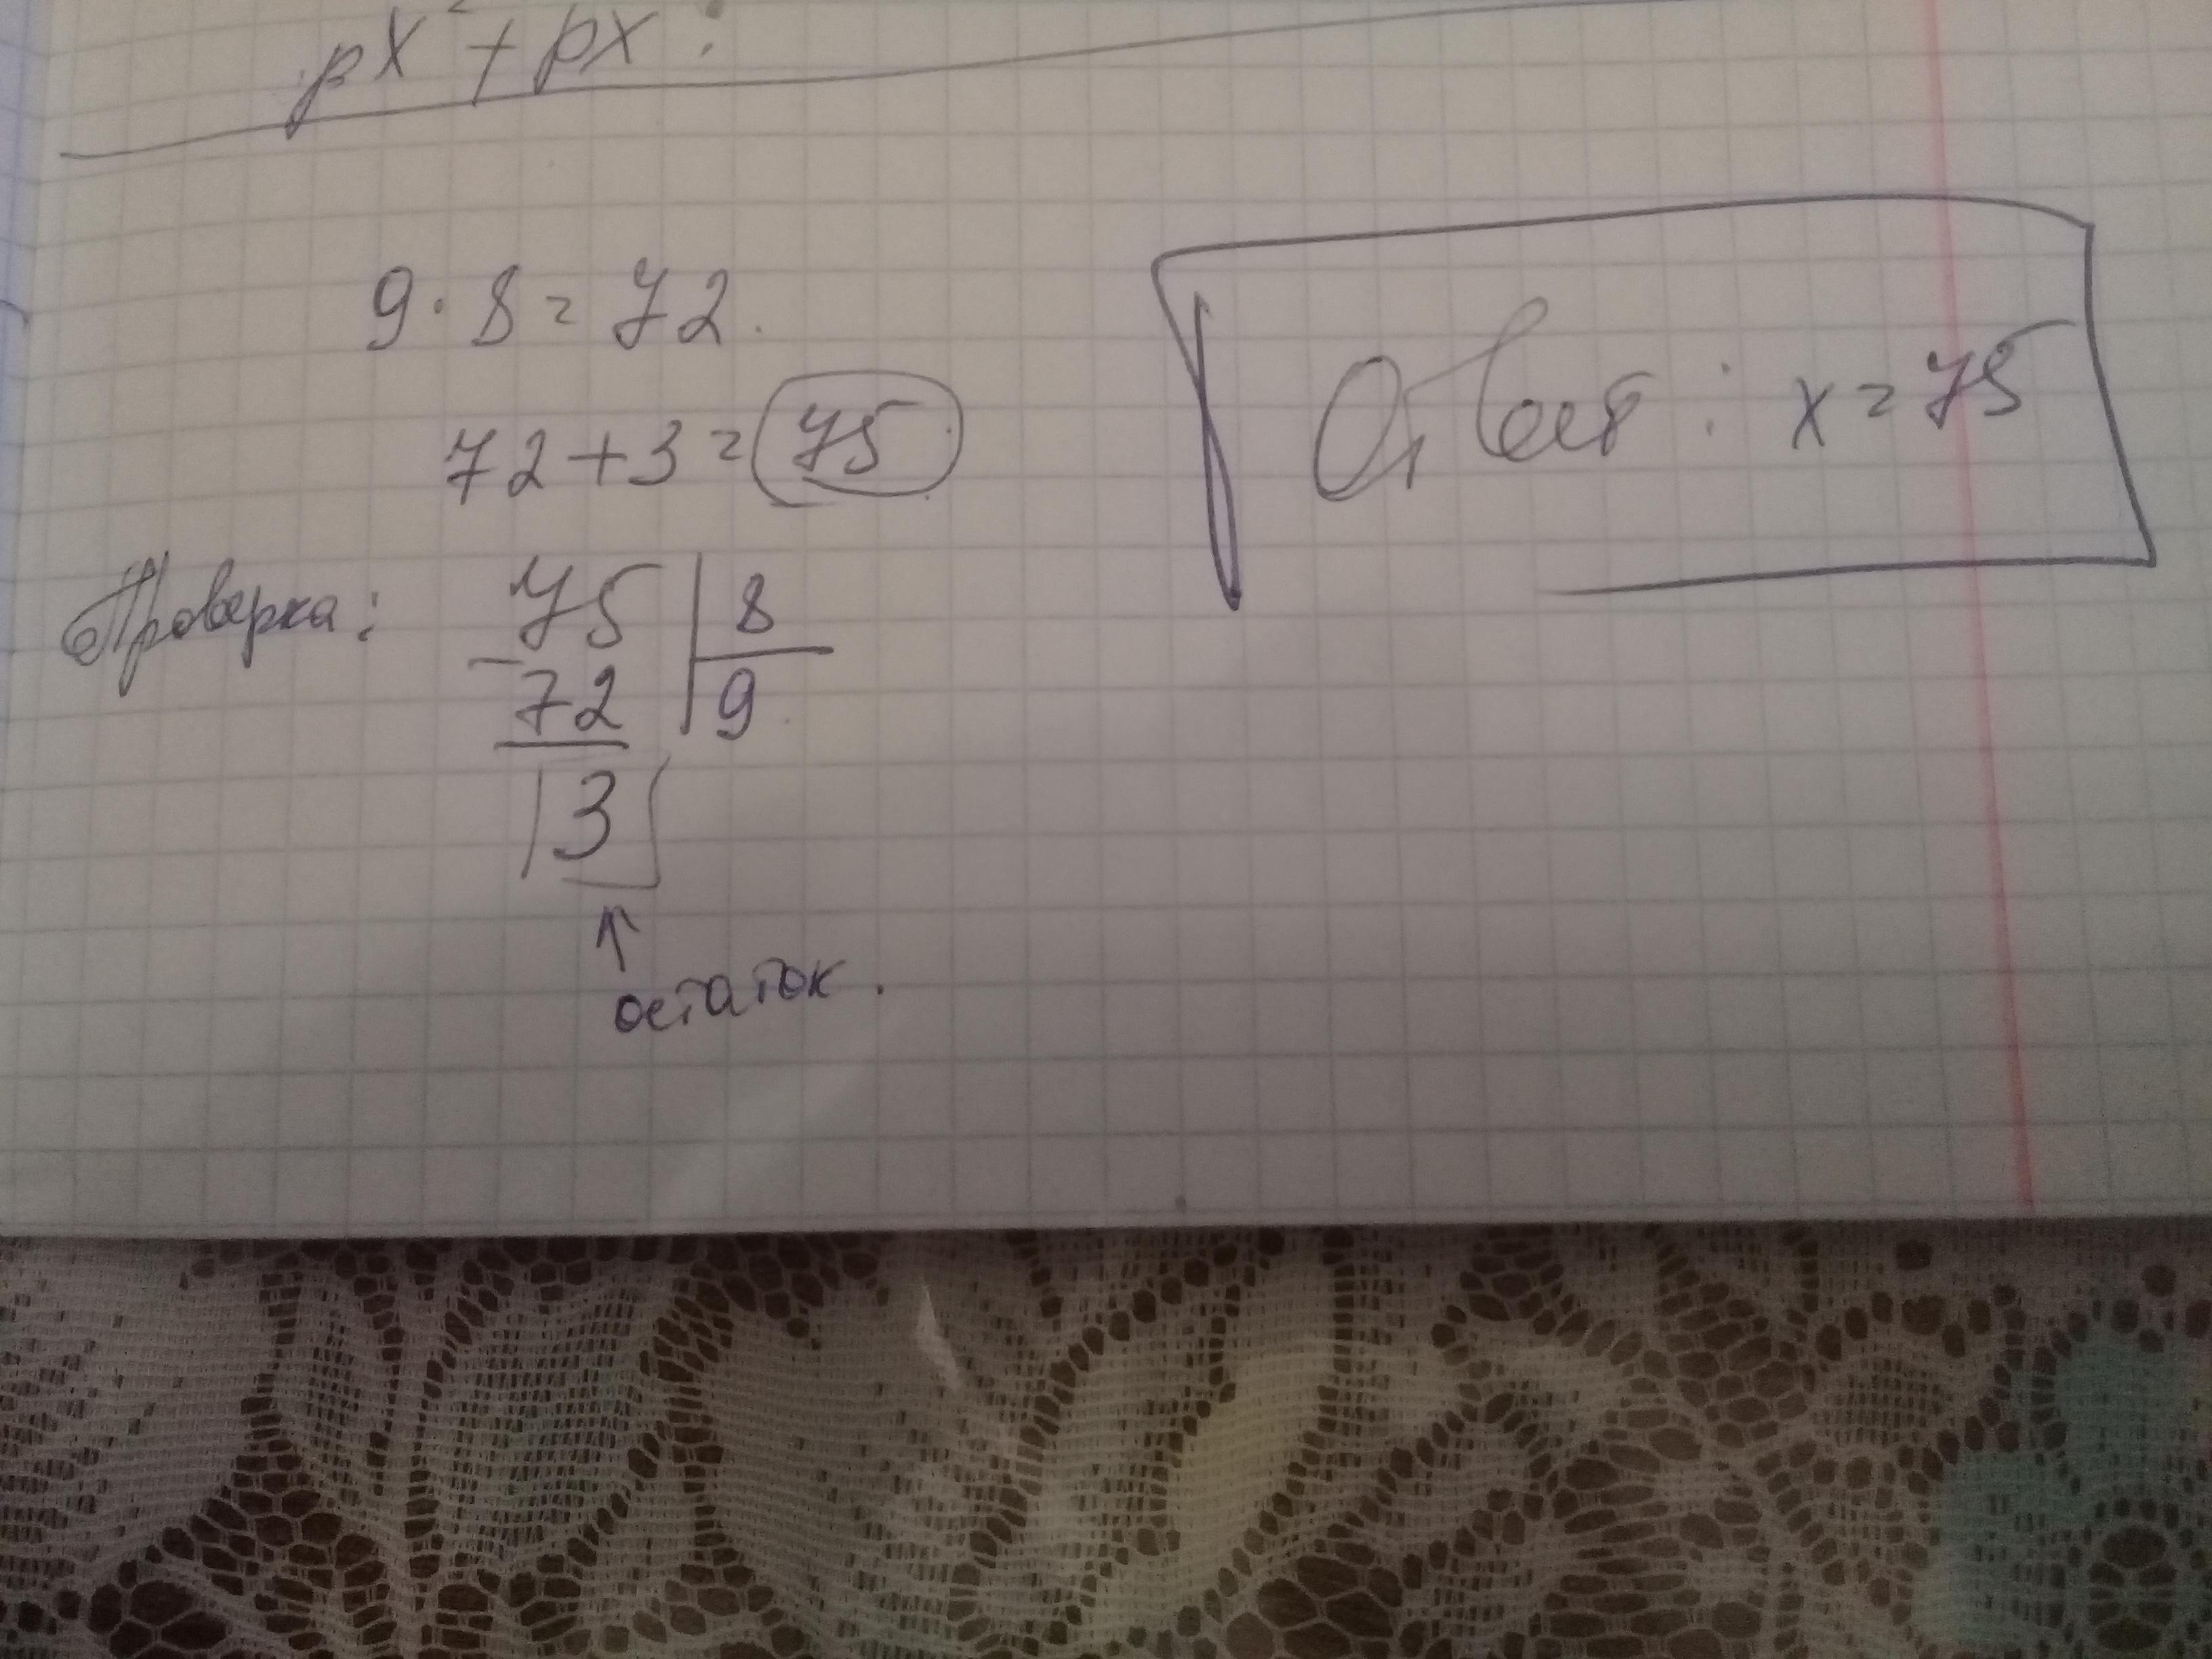 px² + px :
9 · 8 = 72.
72 + 3 = 75
Ответ : x = 75
Проверка :
75 | 8
- 72 | 9
3
↑
остаток .